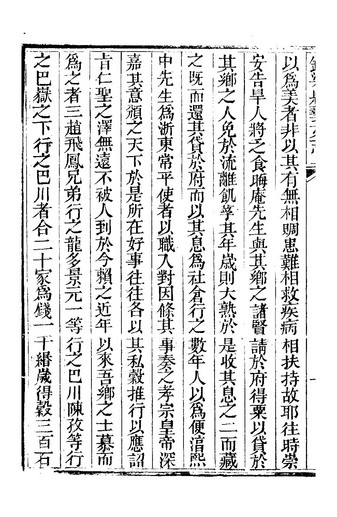 以為美者非以其有無相賙患難相救疾病相扶持故耶往時崇
安告旱人將乏食晦庵先生與其鄉之諸賢請於府得粟以貸於
其鄉之人免於流離飢莩其年歲則大熟於是收其息之二而藏
之既而還其貸於府而以其息為社倉行之數年人以為便淯熙
中先生為浙東常平使者以職入對因條其事奏之孝宗皇帝深
嘉其意頒之天下於是所在好事往往各以其私穀推行以應詔
㫖仁聖之澤無遠不被人到於今賴之近年以來吾鄉之士慕而
為之者三趙飛鳳兄弟行之龍多景元一等行之巴川陳孜等行
之巴嶽之下行之巴川者合二十家為錢一千緡歲得穀三百石